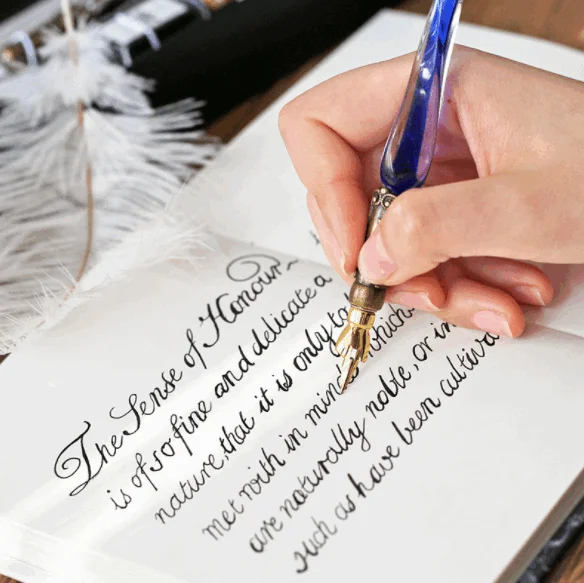 The Sense of Honour
is of so fine and delicate a
nature, that it is only to
met with in minds which
are naturally noble, or in
such as have been cultiva